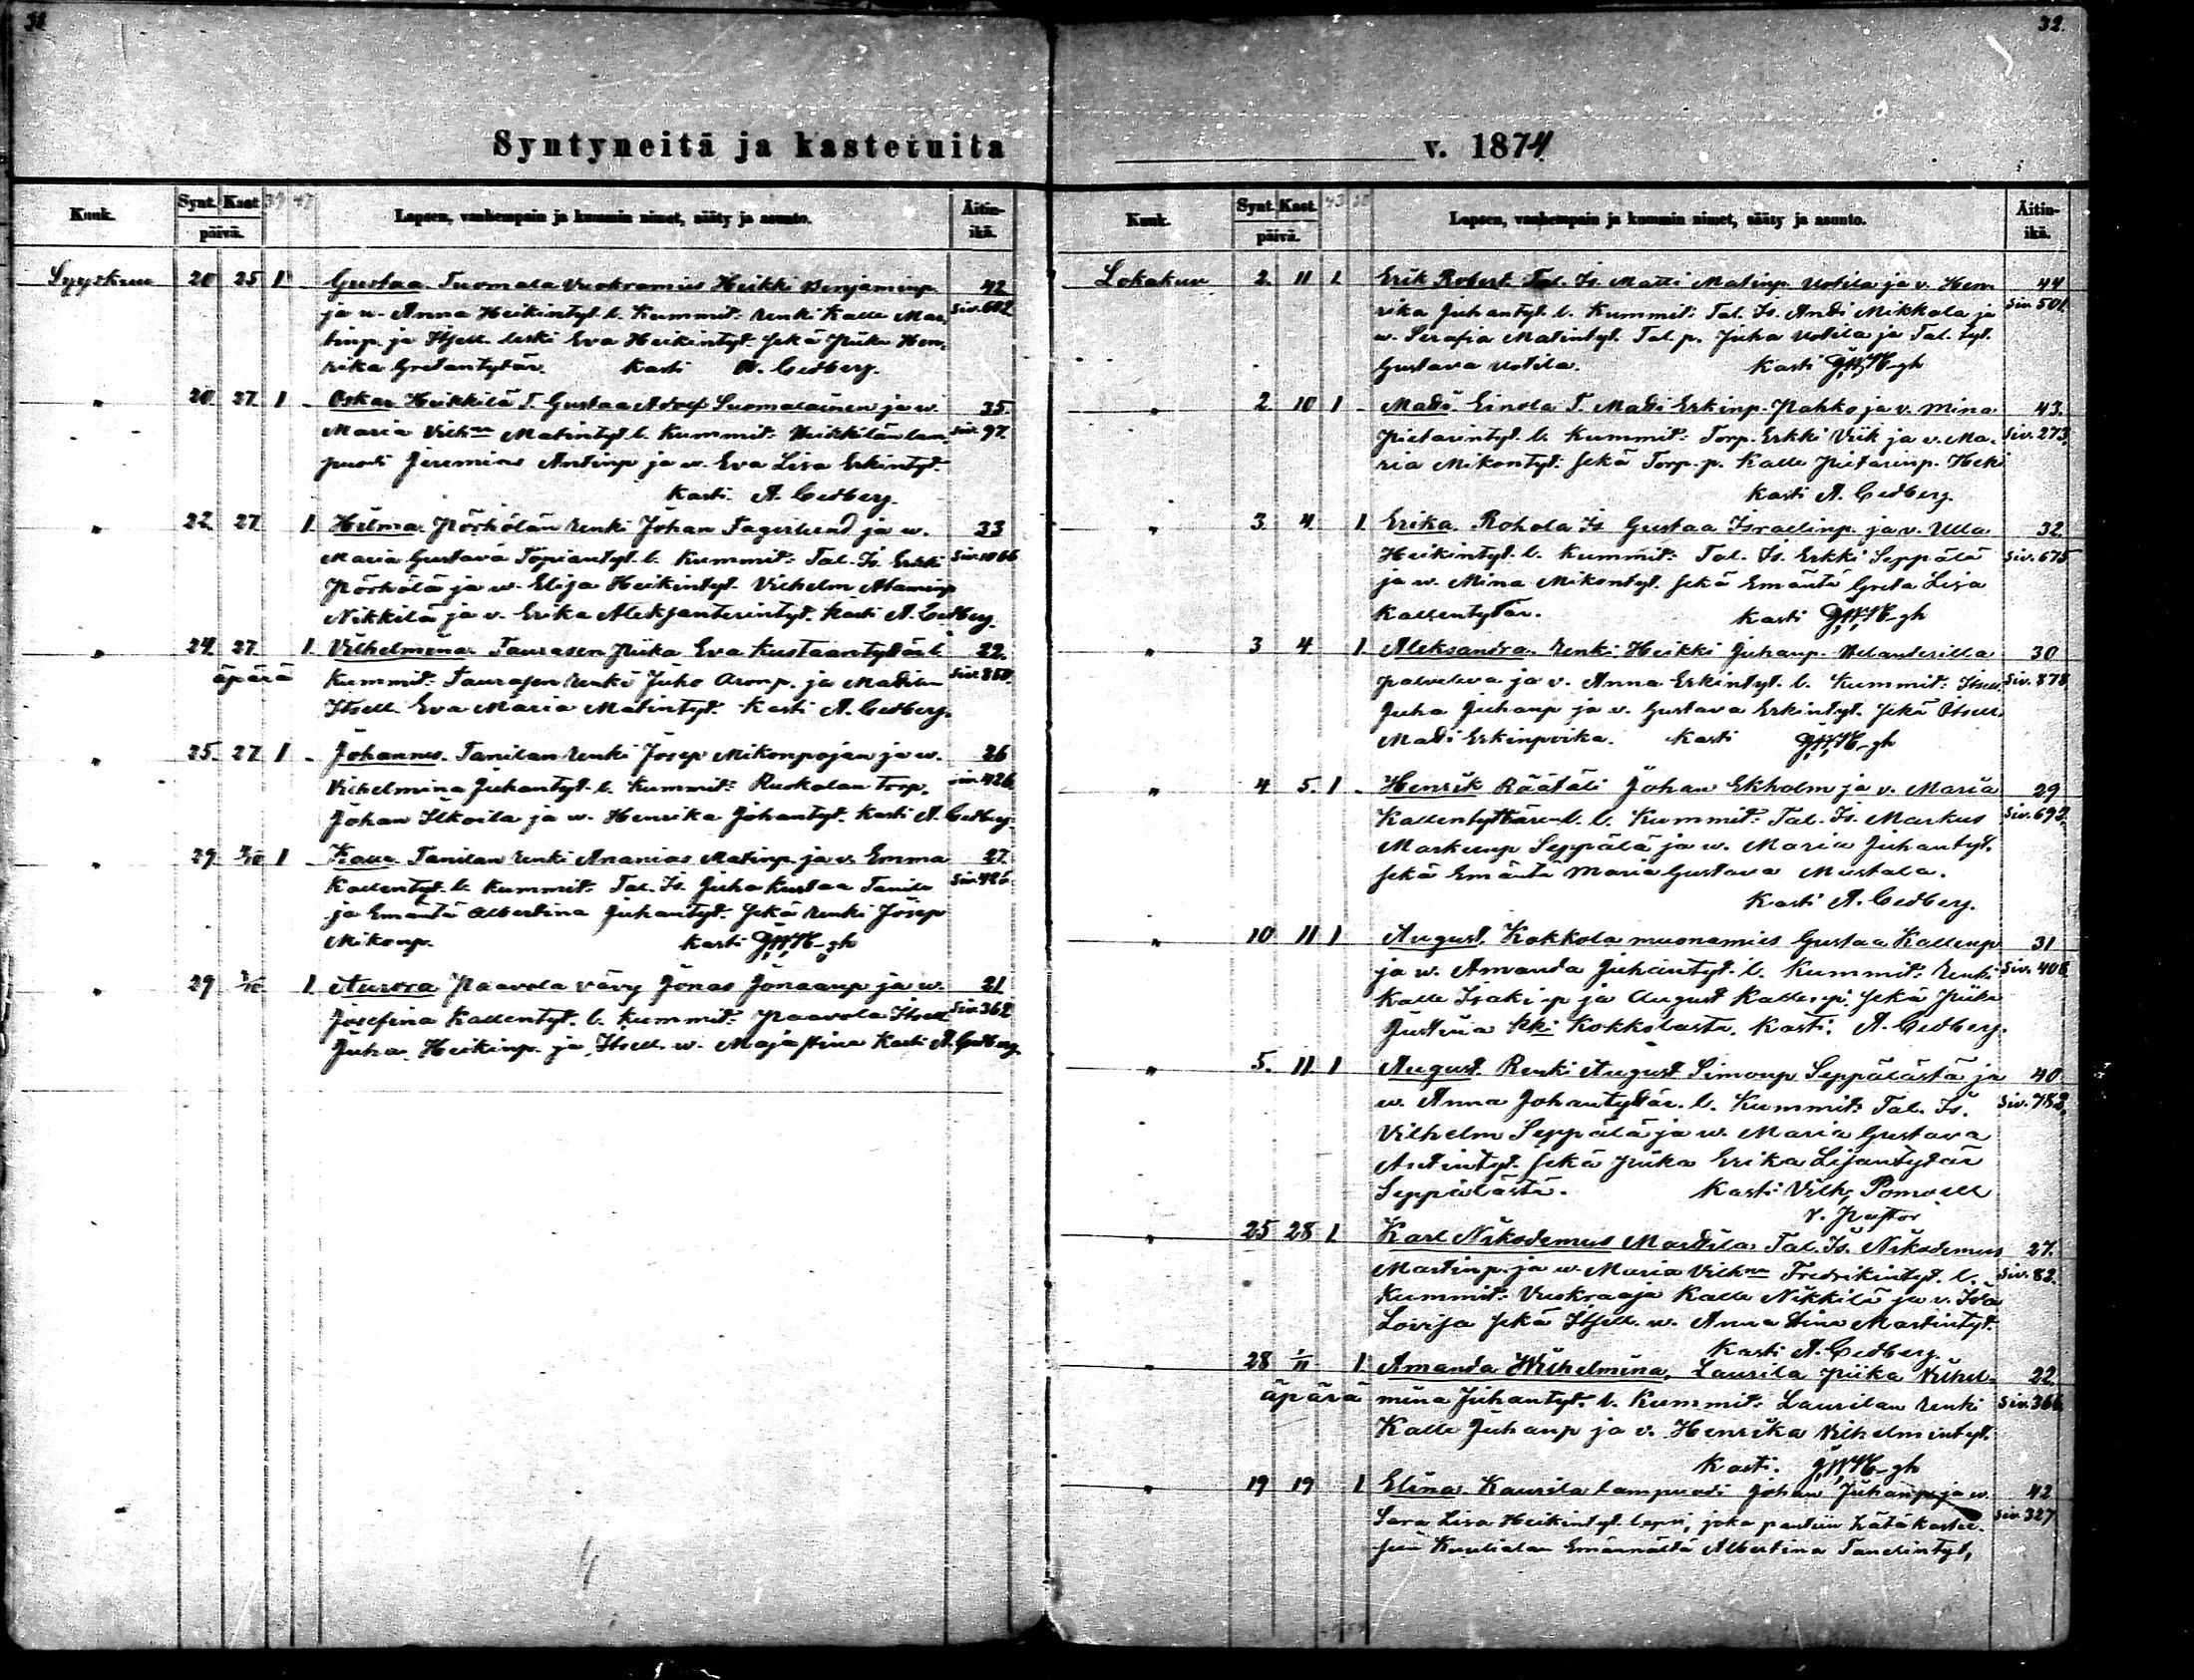 31
Syntyneitä ja kastetuita
Kuuk. Synt. Kast. 39 47 Lapsen, vanhempain ja kummin nimet, sääty ja asunto. Äitin-
päivä. ikä.
Syyskuu 20 25 1 Gustaa. Tuomala Vuokramies Heikki Benjaminp. 42
ja w. Anna Heikintyt. l. Kummit: Renki Kalle Mar- Siv. 602
tinp. ja Itsell. leski Eva Heikintyt. sekä Piika Hen-
rika Gretantytär. Kasti A. Cedberg.
" 20. 27. 1 Oskar Heikkilä T. Gustaa Adolf Suomalainen ja w. 35.
Maria Vilhna Matintyt. l. Kummit: Heikkilän lam- Siv. 97.
puodi Jeremias Antinp ja w. Eva Lisa Erkintyt.
Kasti. A. Cedberg.
" 22. 27 1. Hilma. Pörhölän Renki Johan Fagerlund ja w. 33
Maria Gustava Topiantyt. l. Kummit: Tal. Is. Erkki Siv. 1066
Pörhölä ja w. Elisa Heikintyt. Vilhelm Ataminp
Nikkilä ja v. Erika Aleksanterintyt. Kasti A. Cedberg.
" 24 27 1. Vilhelmina. Taurasen Piika Eva Kustaantytär l. 22.
äpärä Kummit: Taurasen Renki Juho Aronp. ja Madilan Siv. 850.
Itsell. Eva Maria Matintyt. Kasti A. Cedberg.
" 25. 27 1 Johannes. Tanilan Renki Josep Mikonpojan ja w. 26
Vilhelmina Juhantyt. l. Kummit: Ruokolan torp. Siv. 426
Johan Ilkoila ja w. Henrika Johantyt. Kasti A. Cedberg.
" 29. /10 1 Kalle. Tanilan Renki Ananias Matinp. ja v. Emma 27.
Kallentyt. l. Kummit: Tal. Is. Juha Kustaa Tanila Siv. 426.
ja Emäntä Albertina Juhantyt. sekä Renki Josep
Mikonp. Kasti G.W.H-gh
" 29 /10. 1. Aurora Paavola vävy Jonas Jonaanp ja w. 21
Josefina Kallentyt. l. Kummit: Paavola Itsell. Siv. 362
Juha Heikinp. ja Itsell. w. Maja Stina Kasti A. Cedberg.
32.
v. 1874
Kuuk. Synt. Kast. 43 Lapsen, vanhempain ja kummin nimet, sääty ja asunto. Äitin-
päivä. ikä.
Lokakuu 2. 11 1 Erik Robert. Tal. Is. Matti Matinp. Uotila ja v. Hen- 44
rika Juhantyt. l. Kummit: Tal. Is. Andi Mikkola ja Siv. 501.
w. Serafia Matintyt. Tal. p. Juha Uotila ja Tal. tyt.
Gustava Uotila. Kasti G.W.H-gh
" 2. 10 1 Madi. Einola T. Madi Erkinp. Pahko ja v. Mina 43.
Pietarintyt. l. Kummit: Torp. Erkki Viik ja v. Ma- Siv. 273.
ria Mikontyt. sekä Torp. p. Kalle Pietarinp. Heki
Kasti A. Cedberg.
" 3. 4. 1. Erika. Rohola Is. Gustaa Israelinp. ja v. Ulla 32.
Heikintyt. l. Kummit: Tal. Is. Erkki Seppälä Siv. 675
ja w. Mina Mikontyt. sekä Emäntä Greta Lisa
Kallentytär. Kasti G.W.H-gh
" 3 4 1. Aleksandra. Renki Heikki Juhanp. Velanderilla 30
palveleva ja v. Anna Erkintyt. l. Kummit: Itsell. Siv. 878
Juha Juhanp ja w. Gustava Erkintyt. sekä Itsell.
Madi Erkinpoika. Kasti G.W.H-gh
" 4. 5. 1 Henrik Räätäli Johan Ekholm ja v. Maria 29
Kallentyttären l. l. Kummit: Tal. Is. Markus Siv. 692.
Markunp Seppälä ja w. Maria Juhantyt.
sekä Emäntä Maria Gustava Mustala.
Kasti A. Cedberg.
" 10 11 1 August. Kokkola muonamies Gustaa Kallenp 31
ja w. Amanda Juhantyt. l. Kummit: Renki Siv. 406.
Kalle Isakip ja August Kallenp. sekä Piika
Justina kki Kokkolasta. Kasti; A. Cedberg.
" 5. 11 1 August. Renki August Simonp Seppälästä ja 40.
w. Anna Johantytär. l. Kummit: Tal. Is. Siv. 782.
Vilhelm Seppälä ja w. Maria Gustava
Antintyt. sekä Piika Erika Lisantytär
Seppälästä. Kasti Vilh.
v. Pastor
" 25 28 1. Karl Nikodemus Mardila Tal. Is. Nikodemus 27.
Martinp. ja w. Maria Vilhna Fredrikintyt. l. Siv. 82.
Kummit: Vuokraaja Kalle Nikkilä ja v. Ida
Lovisa sekä Itsell. w. Anna Stina Martintyt.
Kasti A. Cedberg.
" 28 1/11 1. Amanda Wilhelmina. Laurila Piika Vilhel- 22.
äpärä mina Juhantyt. l. Kummit: Laurilan Renki Siv. 366.
Kalle Juhanp ja v. Henrika Vilhelmintyt.
Kasti. G.W.H-gh
" 19 19 1 Elina. Kaurila lampuodi Johan Juhanp ja w. 42
Sara Lisa Heikintyt. lapsi, joka pantiin hätäkastee- Siv. 327
sen Kaulialan Emännältä Albertina